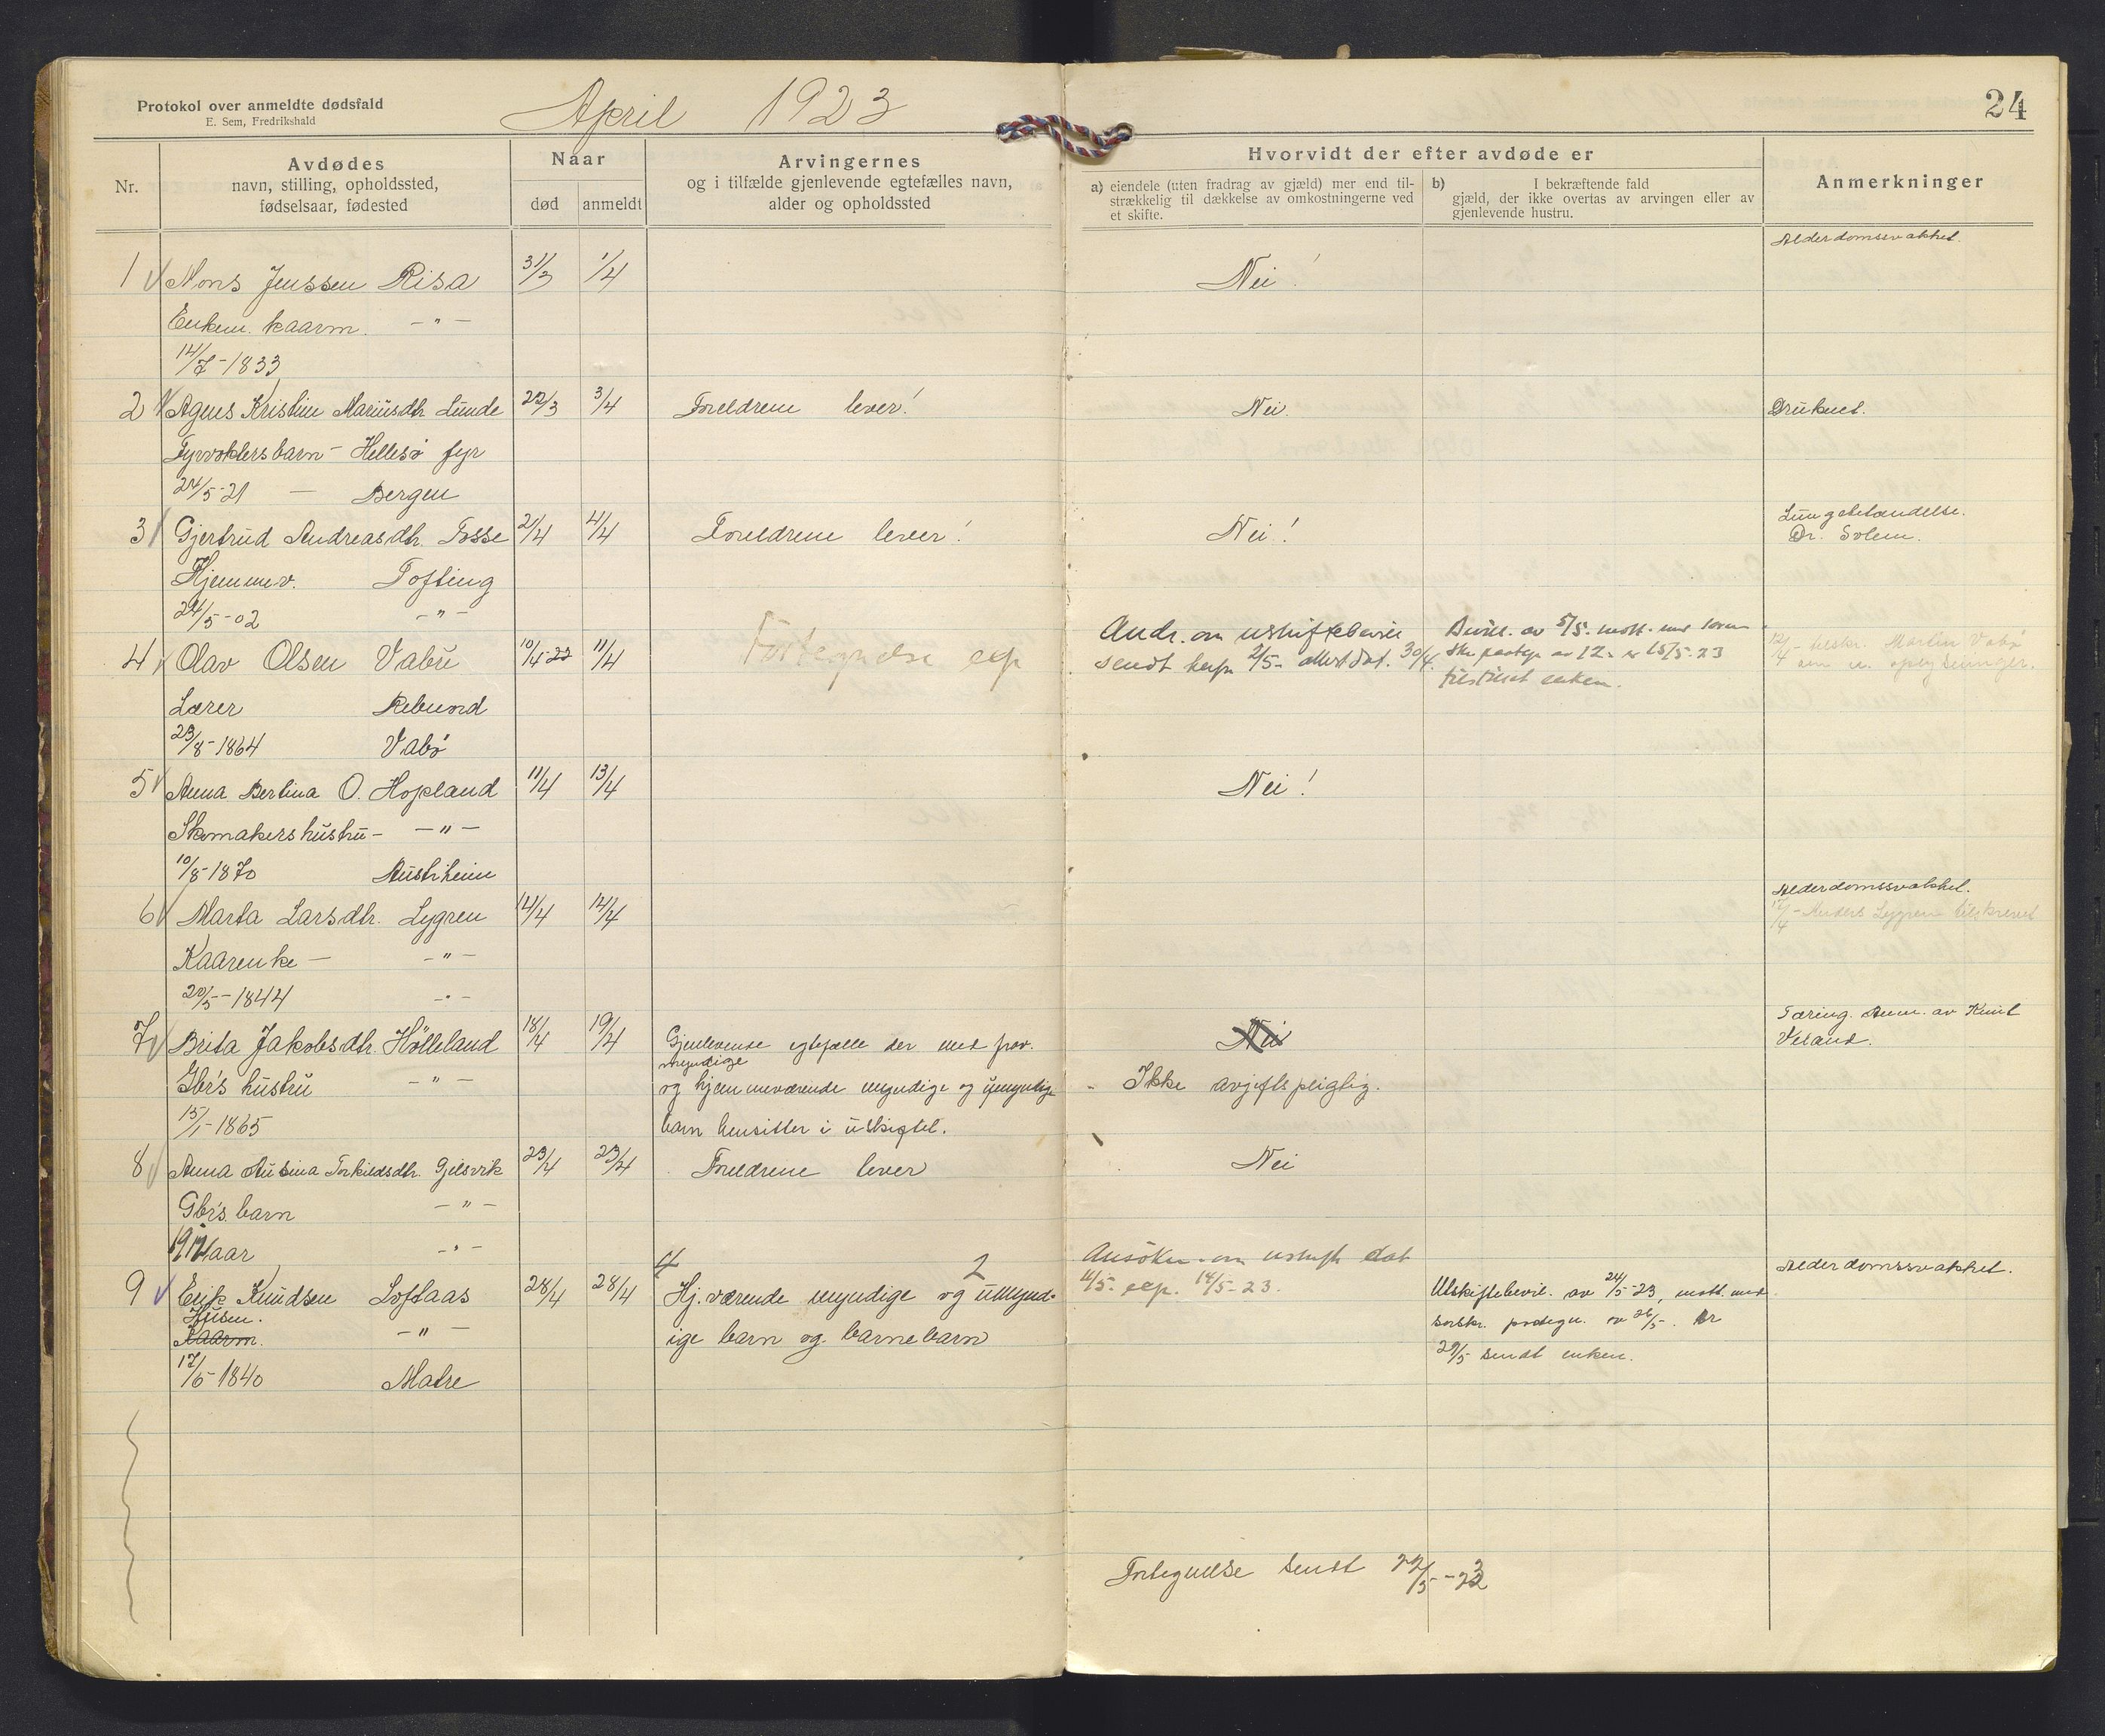 Protokol over anmeldte dødsfald
E. Sem, Fredrikshald
April 1923
24
Nr.
Avdødes
navn, stilling, opholdssted,
fødselsaar, fødested
Naar
død
anmeldt
Arvingernes
og i tilfælde gjenlevende egtefælles navn,
alder og opholdssted
Hvorvidt der efter avdøde er
a) eiendele (uten fradrag av gjæld) mer end til-
strækkelig til dækkelse av omkostningerne ved
et skifte.
b) I bekræftende fald
gjæld, der ikke overtas av arvingen eller av
gjenlevende hustru.
Anmerkninger
Alderdomssvakhet.
1 Mons Jenssen Risa 31/3 1/4 Nei!
Enkem. kaarm. - " -
14/7-1833
2 Agnes Kristine Mariusdtr. Lunde 22/3 3/4 Foreldrene lever! Nei. Druknet.
Fyrvokters barn - Hellesø fyr
24/5-21 - Bergen
3 Gjertrud Andreasdtr. Fosse 2/4 4/4 Foreldrene lever! Nei! Lungebetændelse.
Dr. Solem.
Hjemmev. Tofting
24/5-02 - " -
4 Olav Olsen Vabø 10/4-23 11/4 Fortegnelse exp
Andr. om uskiftebevill.
sendt herfra 2/5- attest dat. 30/4.
Bevill. av 5/5. mott. med
15/5-23
tilstillet enken.
12/4- tilskr. Martin Vabø
om n. oplysninger.
Lærer Rebund
23/8-1864 Vabø
5 Anna Bertina O. Hopland 11/4 13/4 Nei!
Skomakers hustru - - " -
10/8-1870 Austrheim
6 Marta Larsdtr. Lygren 14/4 14/4 Alderdomssvakhet.
17/4- Anders Lygren tilskrevet
Kaarenke - - " -
20/5-1844 - " -
7 Brita Jakobsdtr. Hölleland 18/4 19/4 Gjenlevende egtefælle der med frav. Nei Tæring. Anm. av Knut
Veland.
myndige
Gbr's hustru - " - og hjemmeværende myndige og umyndige - Ikke avgiftspligtig.
15/1-1865 barn hensitter i uskiftet.
8 Anna Ausina Torkildsdtr. Gjelsvik 23/4 23/4 Foreldrene lever Nei
Gbr's. barn - " -
1921 aar - " -
4 2
Ansökn. om uskifte dat
11/5. exp. 14/5-23.
Alderdomssvakhet.
9 Erik Knudsen Loftaas 28/4 28/4 Hj.værende myndige og umynd- Utskiftebevil. av 24/5-23, mott. med
Husm.
Kaarm. - " - ige barn og barnebarn sorskr. av 26/5. Er
29/5 sendt enken.
17/6-1840 Matre
Fortegnelse sendt 22/5-23